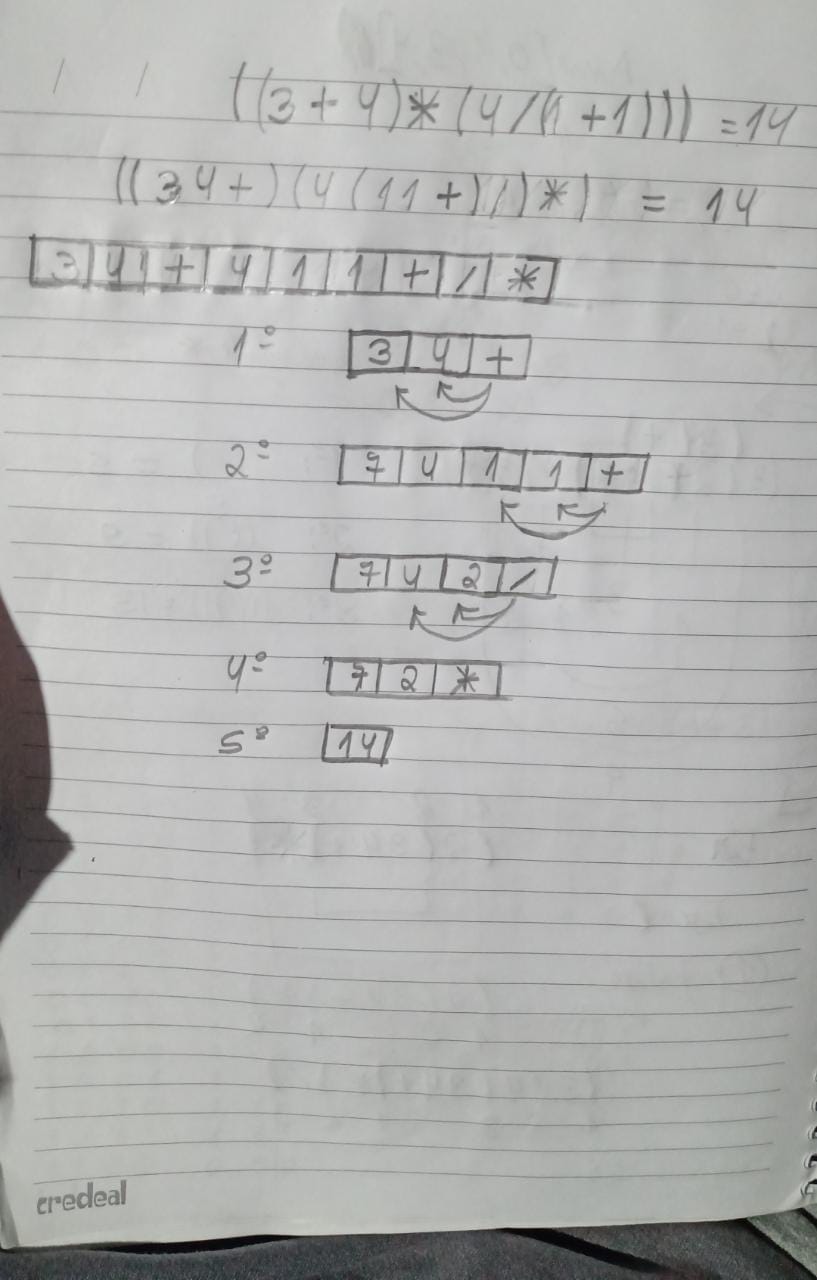 ((3+4)*(4/(1+1))) =14
((34+)(4(11+)/)*) = 14
3 4 + 4 1 1 + / *
1º 3 4 +
2º 7 4 1 1 +
3º 7 4 2 /
4º 7 2 *
5º 14
credeal